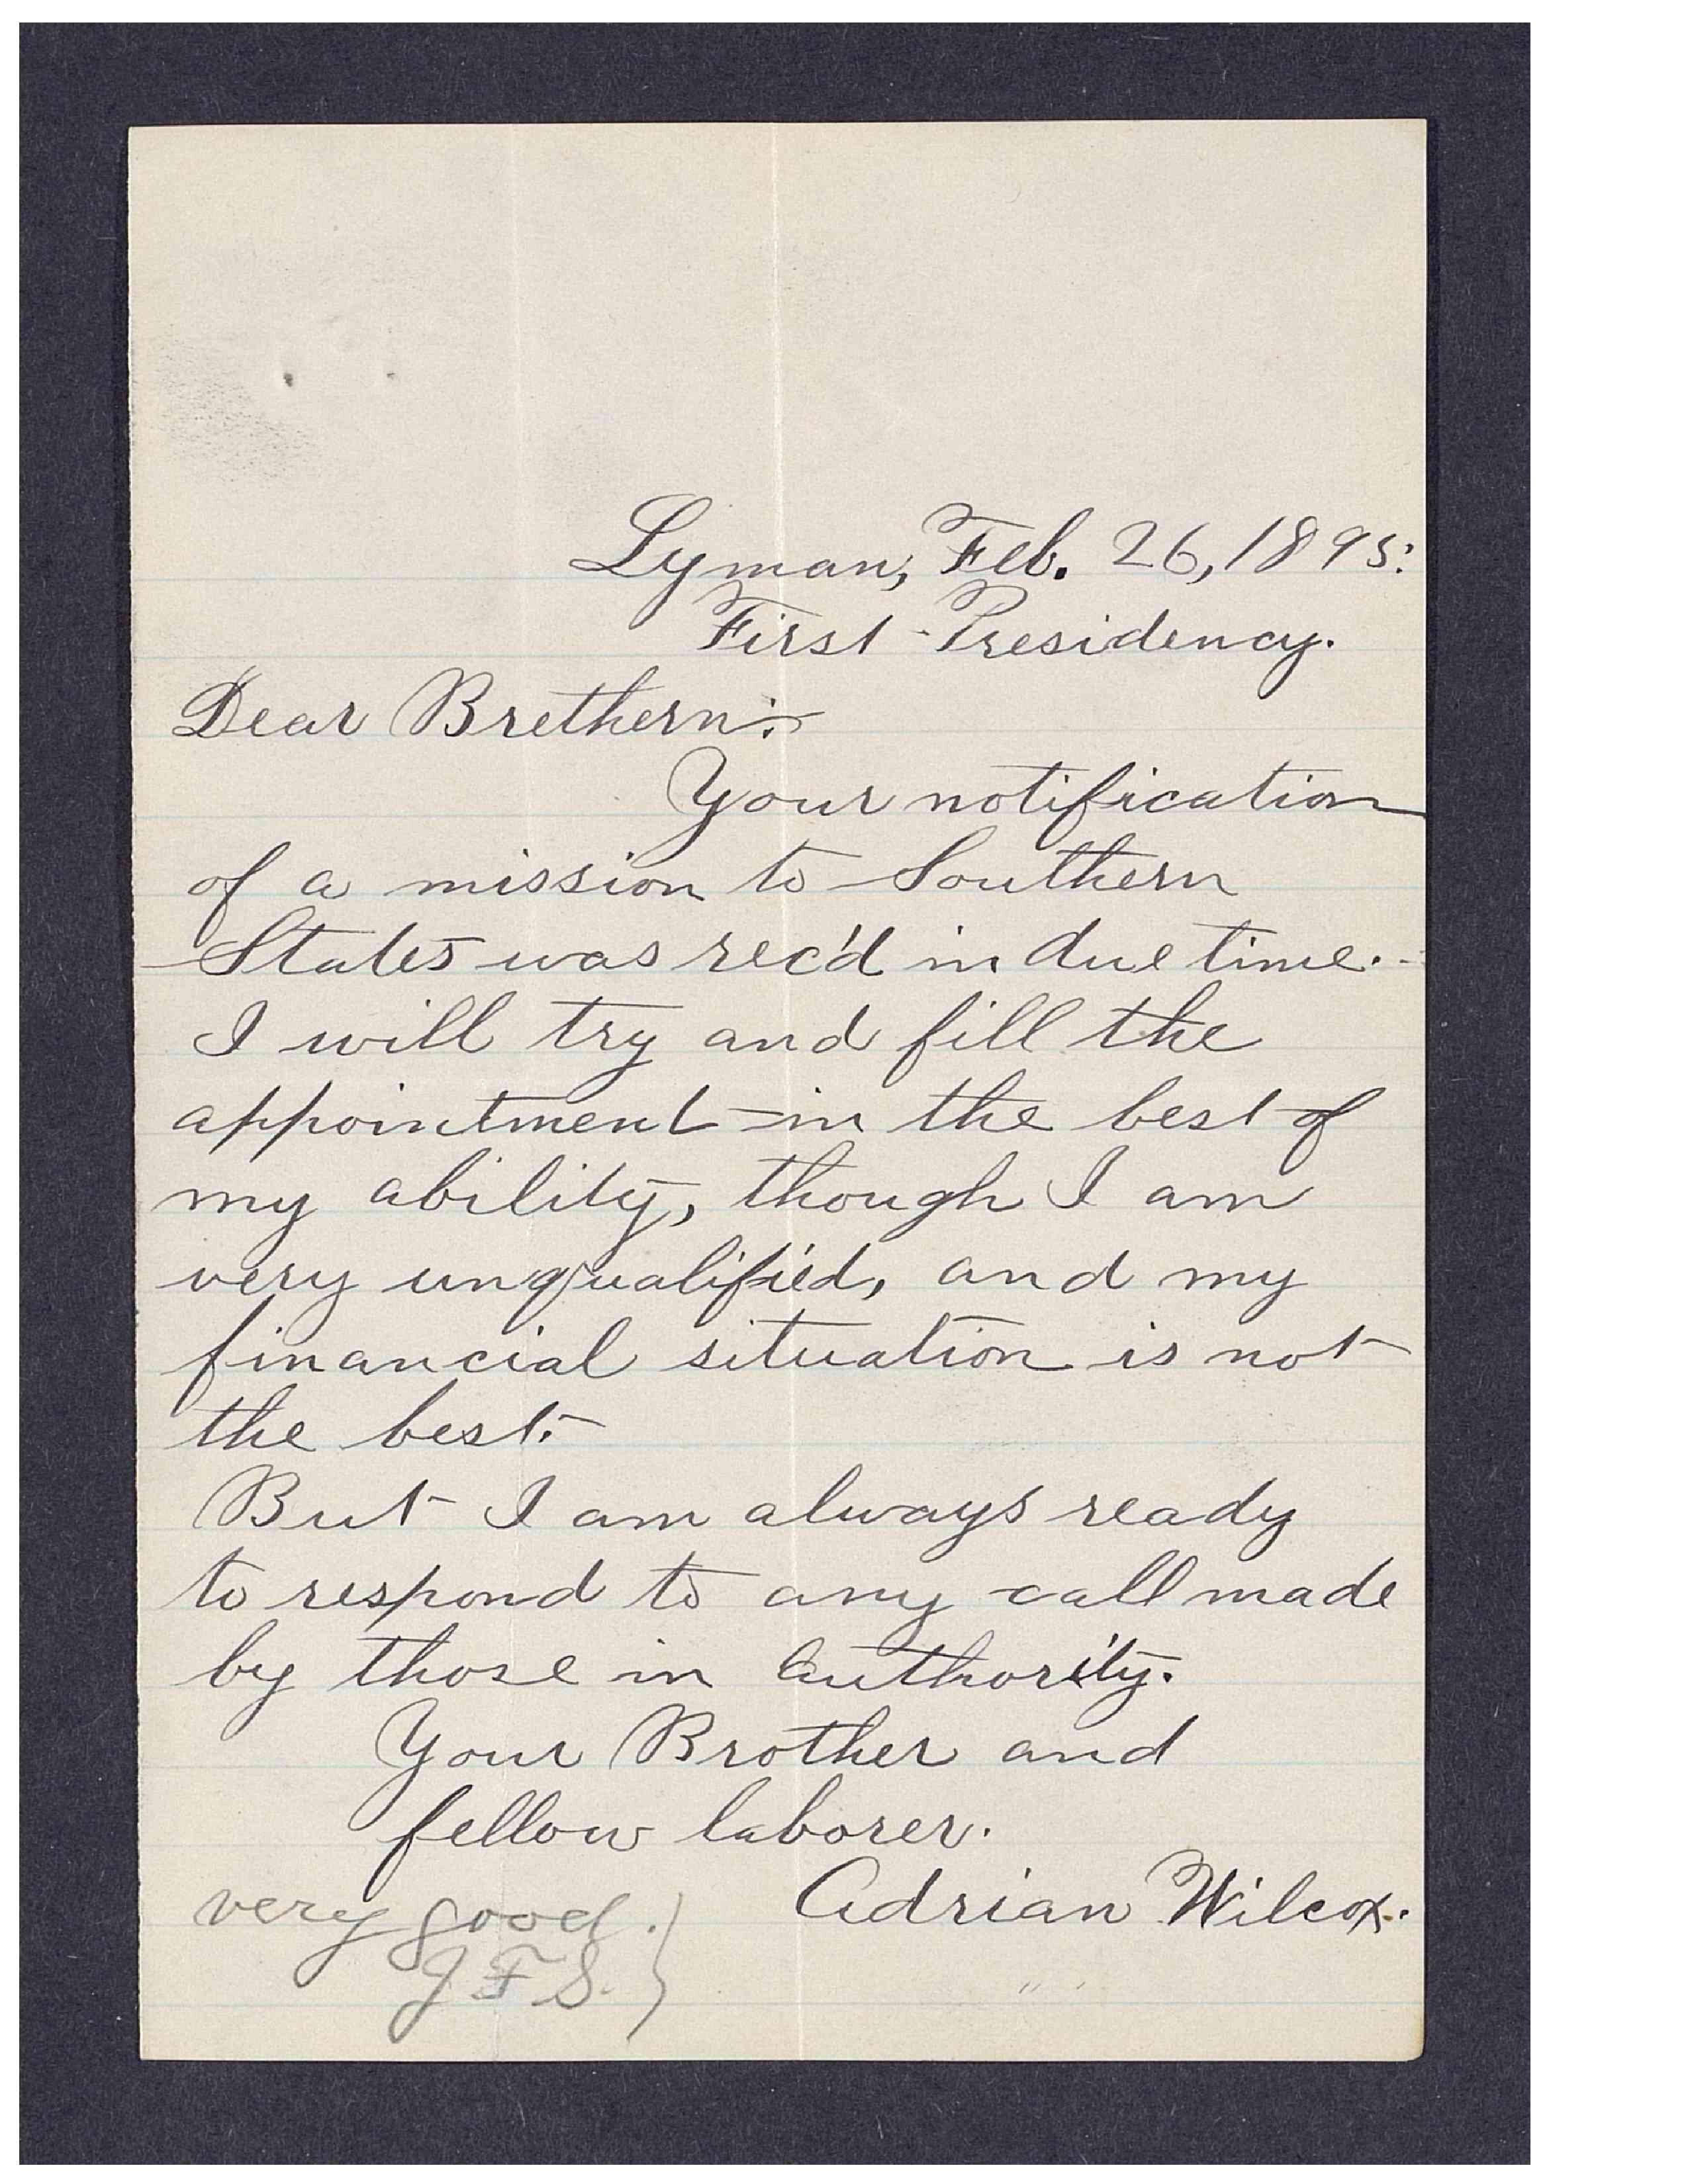 Lyman, Feb. 26, 1895.
First Presidency.
Dear Brethern:
Your notification
of a mission to Southern
States was rec'd in due time.
I will try and fill the
appointment in the best of
my ability, though I am
very unqualified, and my
financial situation is not
the best.
But I am always ready
to respond to any call made
by those in authority.
Your Brother and
fellow laborer.
Adrian Wilcox.
very good.
J F S.